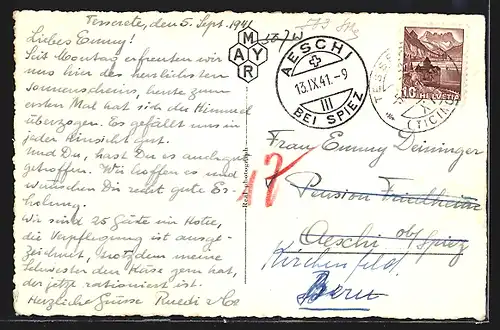 Tesserete, den 5. Sept. 1941
Liebes Emmy!
Seit Montag erfreuten wir
uns hier des herrlichsten
Sonnenschein, heute zum
ersten Mal hat sich der Himmel
überzogen. Es gefällt uns in
jeder Hinsicht gut.
Und Du, hast Du es auch gut
getroffen. Wir hoffen es und
wünschen Dir recht gute Er-
holung.
Wir sind 25 Gäste im Hotel,
die Verpflegung ist ausge-
zeichnet, trotzdem meine
Schwester den Käse gern hat,
der jetzt rationiert ist.
Herzliche Grüsse Ruedi & Co
MAYR
Real photograph
AESCHI
13.IX.41.-9
III
BEI SPIEZ
TESSERETE
(TICINO)
10 HELVETIA
Frau Emmy Deininger
Pension Friedheim
Aeschi ob/Spiez
Kirchenfeld,
Bern